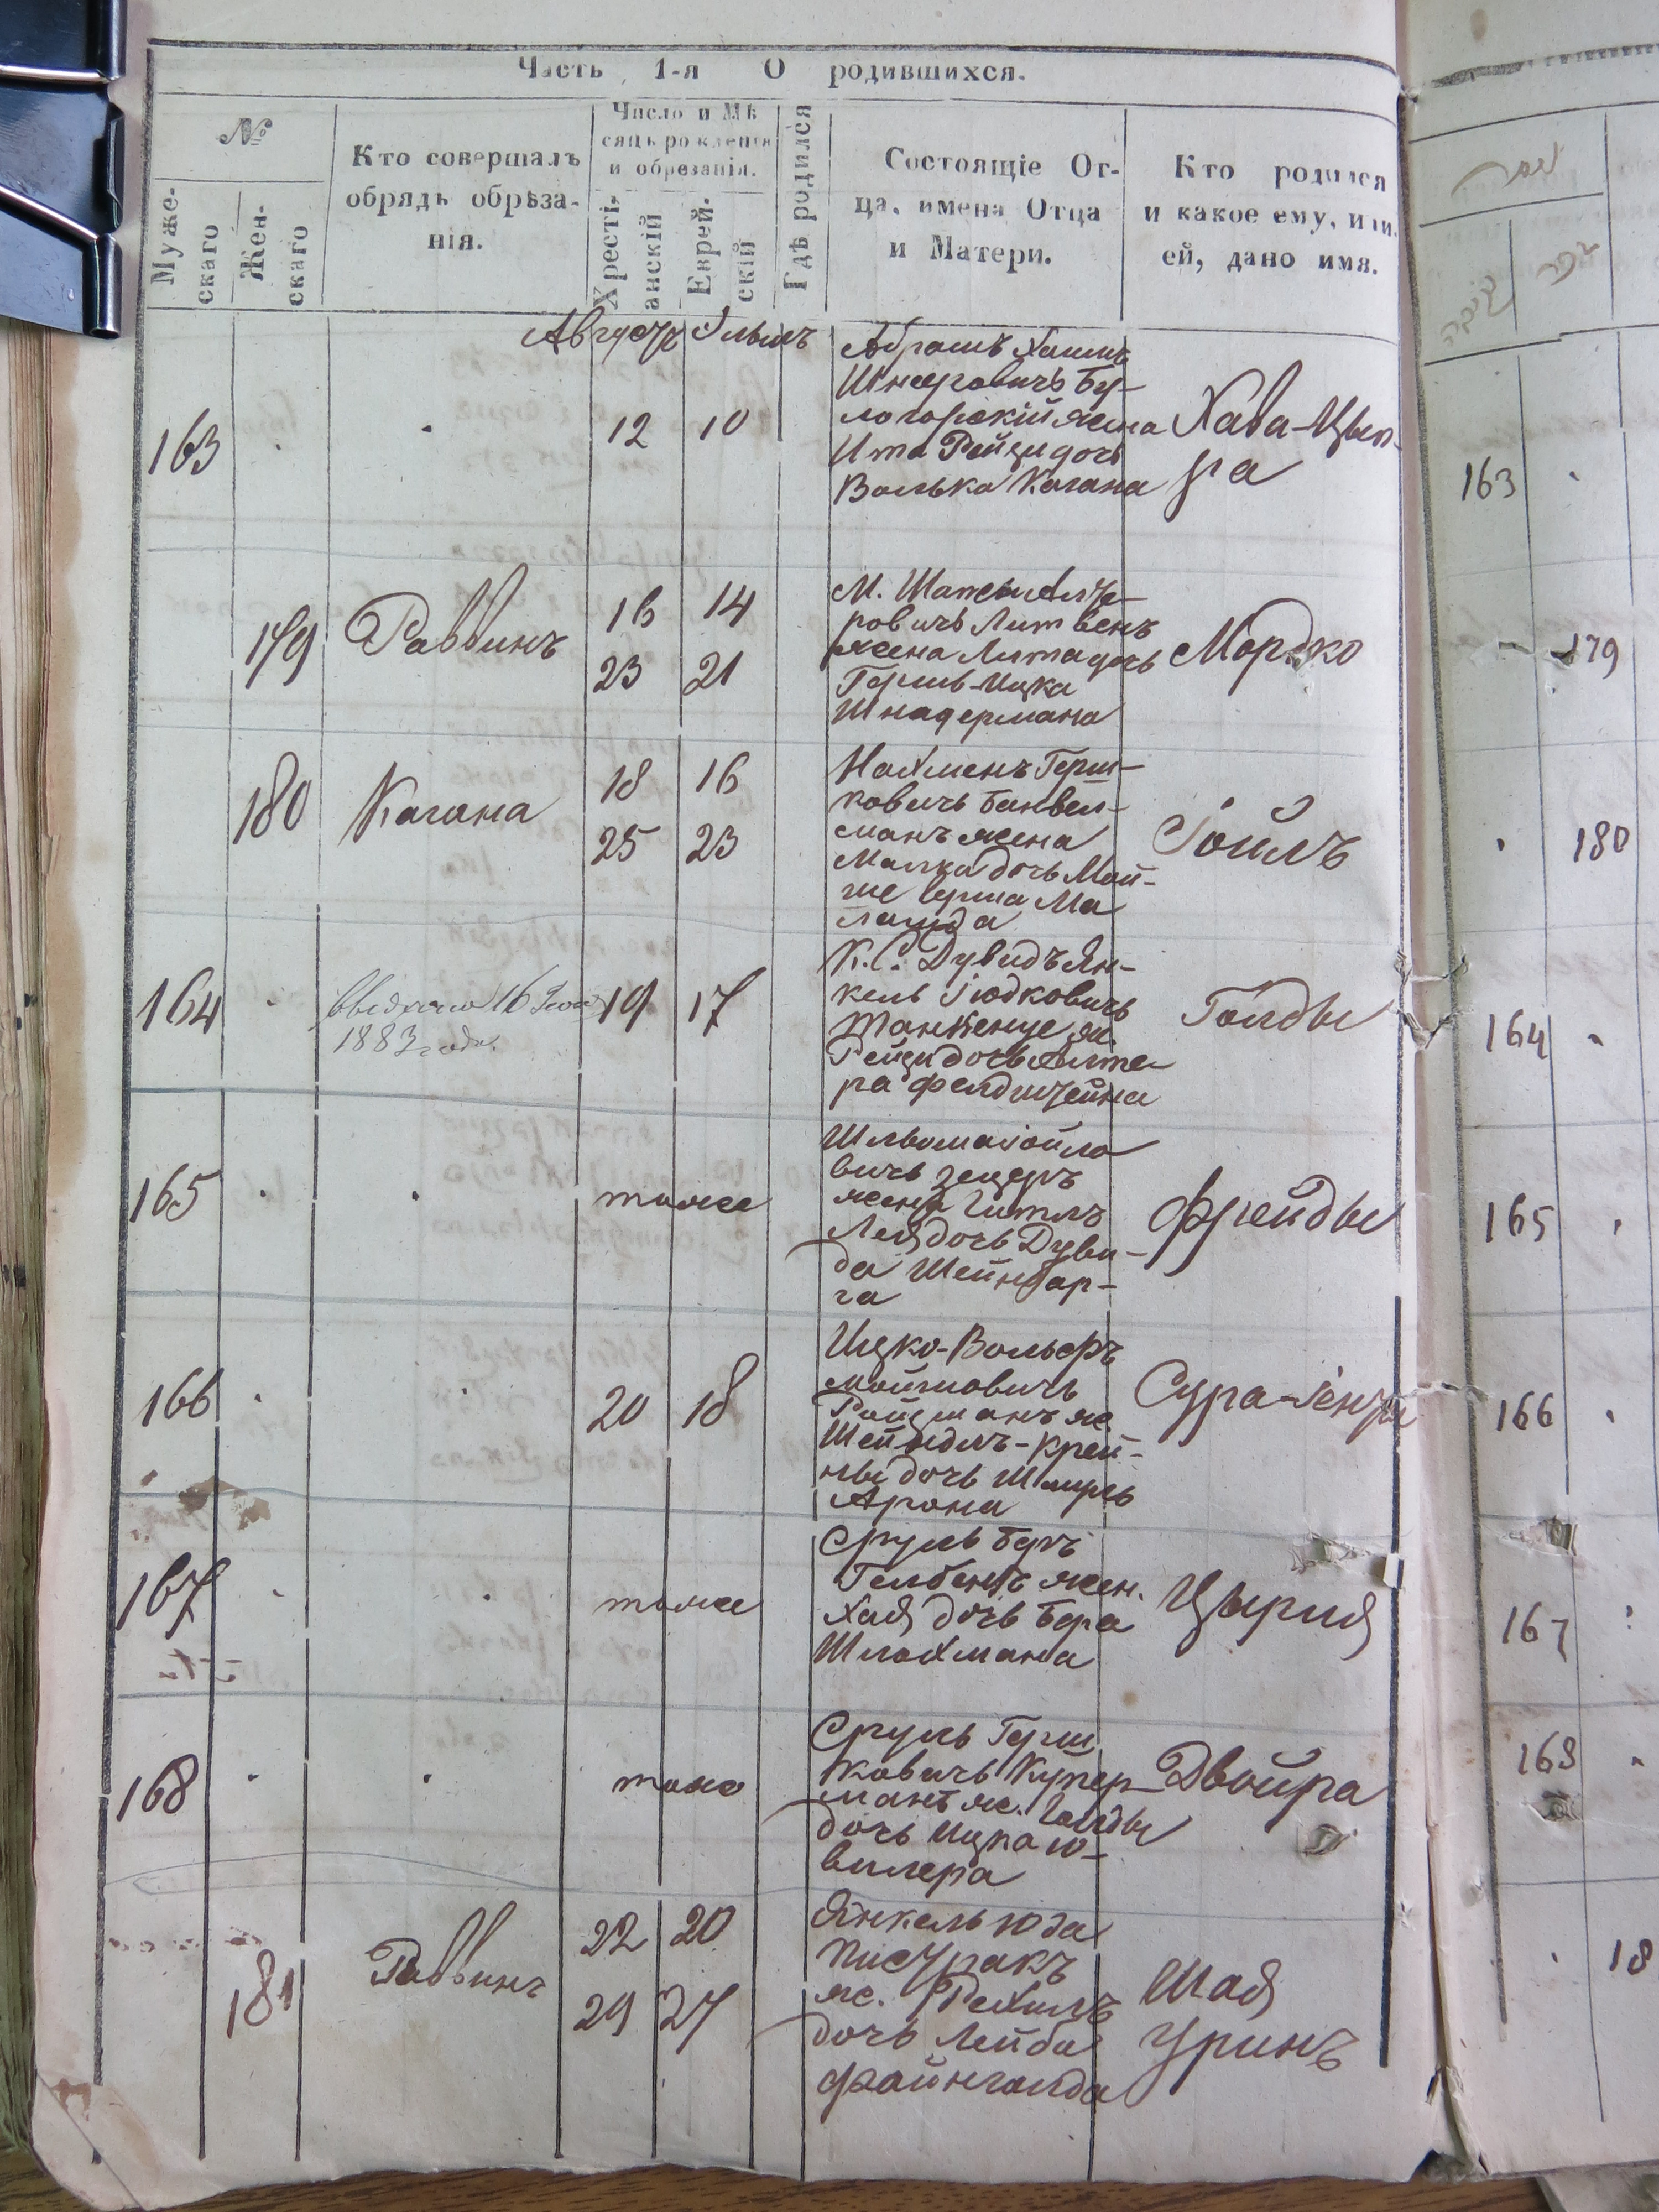 Часть 1-я О родившихся.
№
Муже-
скаго
Жен-
скаго
Кто совершалъ
обрядъ обрѣза-
нія.
Число и Мѣ
сяцъ рожденія
и обрезанія.
Хресті-
анскій
Еврей-
скій
Гдѣ родился
Состоящіе От-
ца, имена Отца
и Матери.
Кто родился
и какое ему, или
ей, дано имя.
Августъ
163
12
10
Абрамъ Хаимъ
Шнееровичъ Бу-
логорскій жена
Ита Рейзи дочь
Волька Кагана
Хава-Цып-
ра
163
179
Раввинъ
16 14
23 21
ровичъ Литвенъ
жена Лита дочь
Гершъ-Ицка
Шнадермана
Мордко
179
180
Кагана
18 16
25 23
Нахменъ Герш-
ковичъ Банвел-
манъ жена
Малка дочь Мой-
ше Герша Ма
ланда
Іойлъ
180
164
выдано 16
1883 года.
19 17
К.С. Дувидъ Ян-
кель Іюдковичъ
ж.
Рейзи дочь Алте-
ра Фелдштейна
Голды
164
165
тоже
Шльома Іойло
вичъ Зецеръ
жена Гитлъ
Лея дочь Дуви-
да Шейнбар-
га
Фрейды
165
166
20 18
Ицко-Вольфъ
Мойшовичъ
Ройзманъ ж.
Шейндлъ-Крей-
ны дочь Шмуль
Арона
Сура-Геня
166
167
тоже
Сруль Беръ
Гелбенъ жен.
Хая дочь Бера
Шлахмана
Цырля
167
168
тоже
Сруль Герш
ковичъ Купер-
манъ ж. Голды
дочь Ицка Ю-
вилера
Двойра
168
181
Раввинъ
22 20
29 27
Янкель Юда
Пистракъ
ж. Рехилъ
дочь Лейба
Файнголда
Шая
Уринъ
18